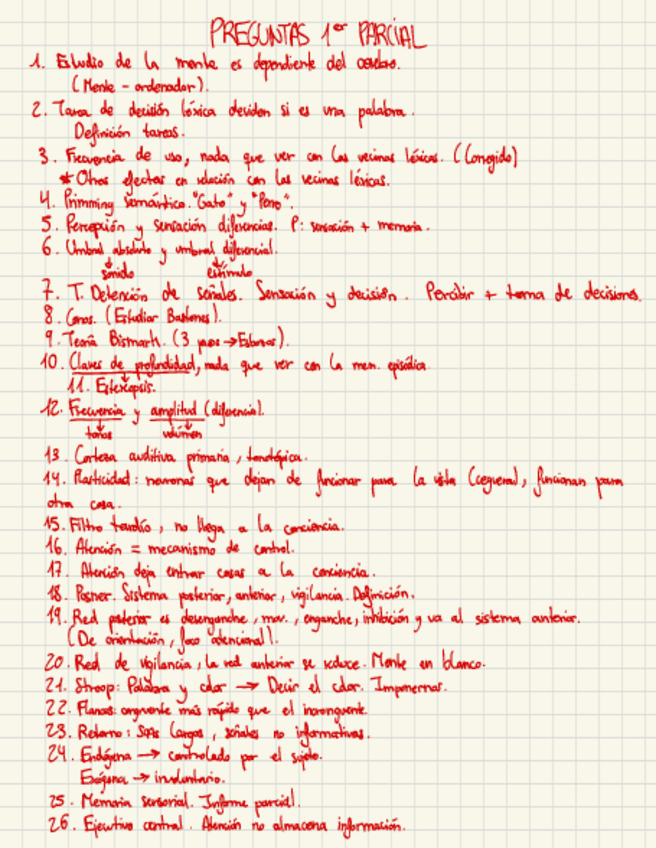 PREGUNTAS 1er PARCIAL
1. Estudio de la mente es dependiente del cerebro.
(Mente - ordenador).
2. Tarea de decisión léxica deciden si es una palabra.
Definición tareas.
3. Frecuencia de uso, nada que ver con las vecinas léxicas. (Corregido)
* Otros efectos en relación con las vecinas léxicas.
4. Primming semántico. "Gato" y "Perro".
5. Percepción y sensación diferencias. P: sensación + memoria.
6. Umbral absoluto y umbral diferencial.
↓ sonido ↓ estímulo
7. T. Detención de señales. Sensación y decisión. Percibir + toma de decisiones.
8. Conos. (Estudiar Bastones).
9. Teoría Bismark. (3 pasos → Esbozos).
10. Claves de profundidad, nada que ver con la mem. episódica
11. Estereopsis.
12. Frecuencia y amplitud (diferencia).
↓ tonos ↓ volumen
13. Corteza auditiva primaria, tonotópica.
14. Plasticidad: neuronas que dejan de funcionar para la vista (ceguera), funcionan para
otra cosa.
15. Filtro tardío, no llega a la conciencia.
16. Atención = mecanismo de control.
17. Atención deja entrar cosas a la conciencia.
18. Posner. Sistema posterior, anterior, vigilancia. Definición.
19. Red posterior es desenganche, mov., enganche, inhibición y va al sistema anterior.
(De orientación, foco atencional).
20. Red de vigilancia, la red anterior se reduce. Mente en blanco.
21. Stroop: Palabra y color → Decir el color.
22. congruente más rápido que el incongruente.
23. Retorno: Soas largos, señales no informativas.
24. Endógena → controlado por el sujeto.
Exógena → involuntario.
25. Memoria sensorial. Informe parcial.
26. Ejecutivo central. Atención no almacena información.